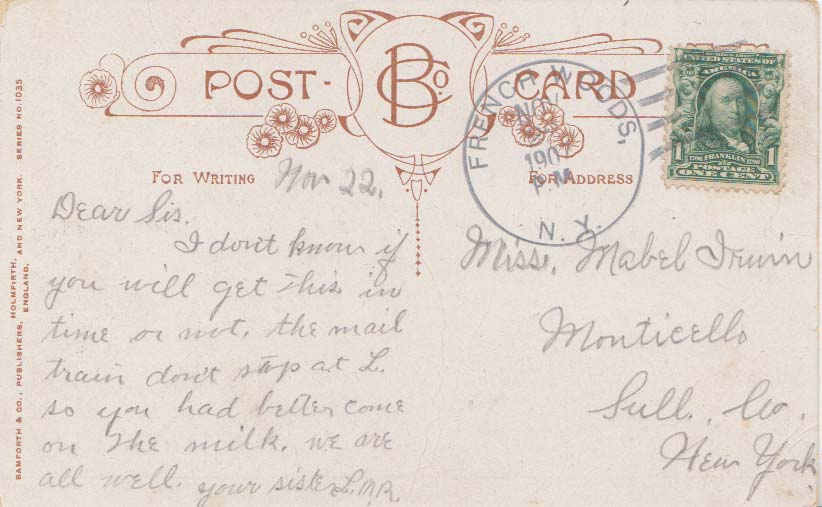 POST- BCo CARD
FOR WRITING
FOR ADDRESS
Nov 22.
Dear Sis.
I don't know if
you will get this in
time or not. the mail
train don't stop at L.
so you had better come
on the milk. we are
all well. your sister L.M.R.
FRENCH WOODS,
190
P M
N. Y.
UNITED STATES OF
AMERICA
1 1706 FRANKLIN 1790 1
POSTAGE
ONE CENT
Miss. Mabel Irwin
Monticello
Sull. Co.
New York
BAMFORTH & CO., PUBLISHERS, HOLMFIRTH, AND NEW YORK. SERIES NO. 1035
ENGLAND,